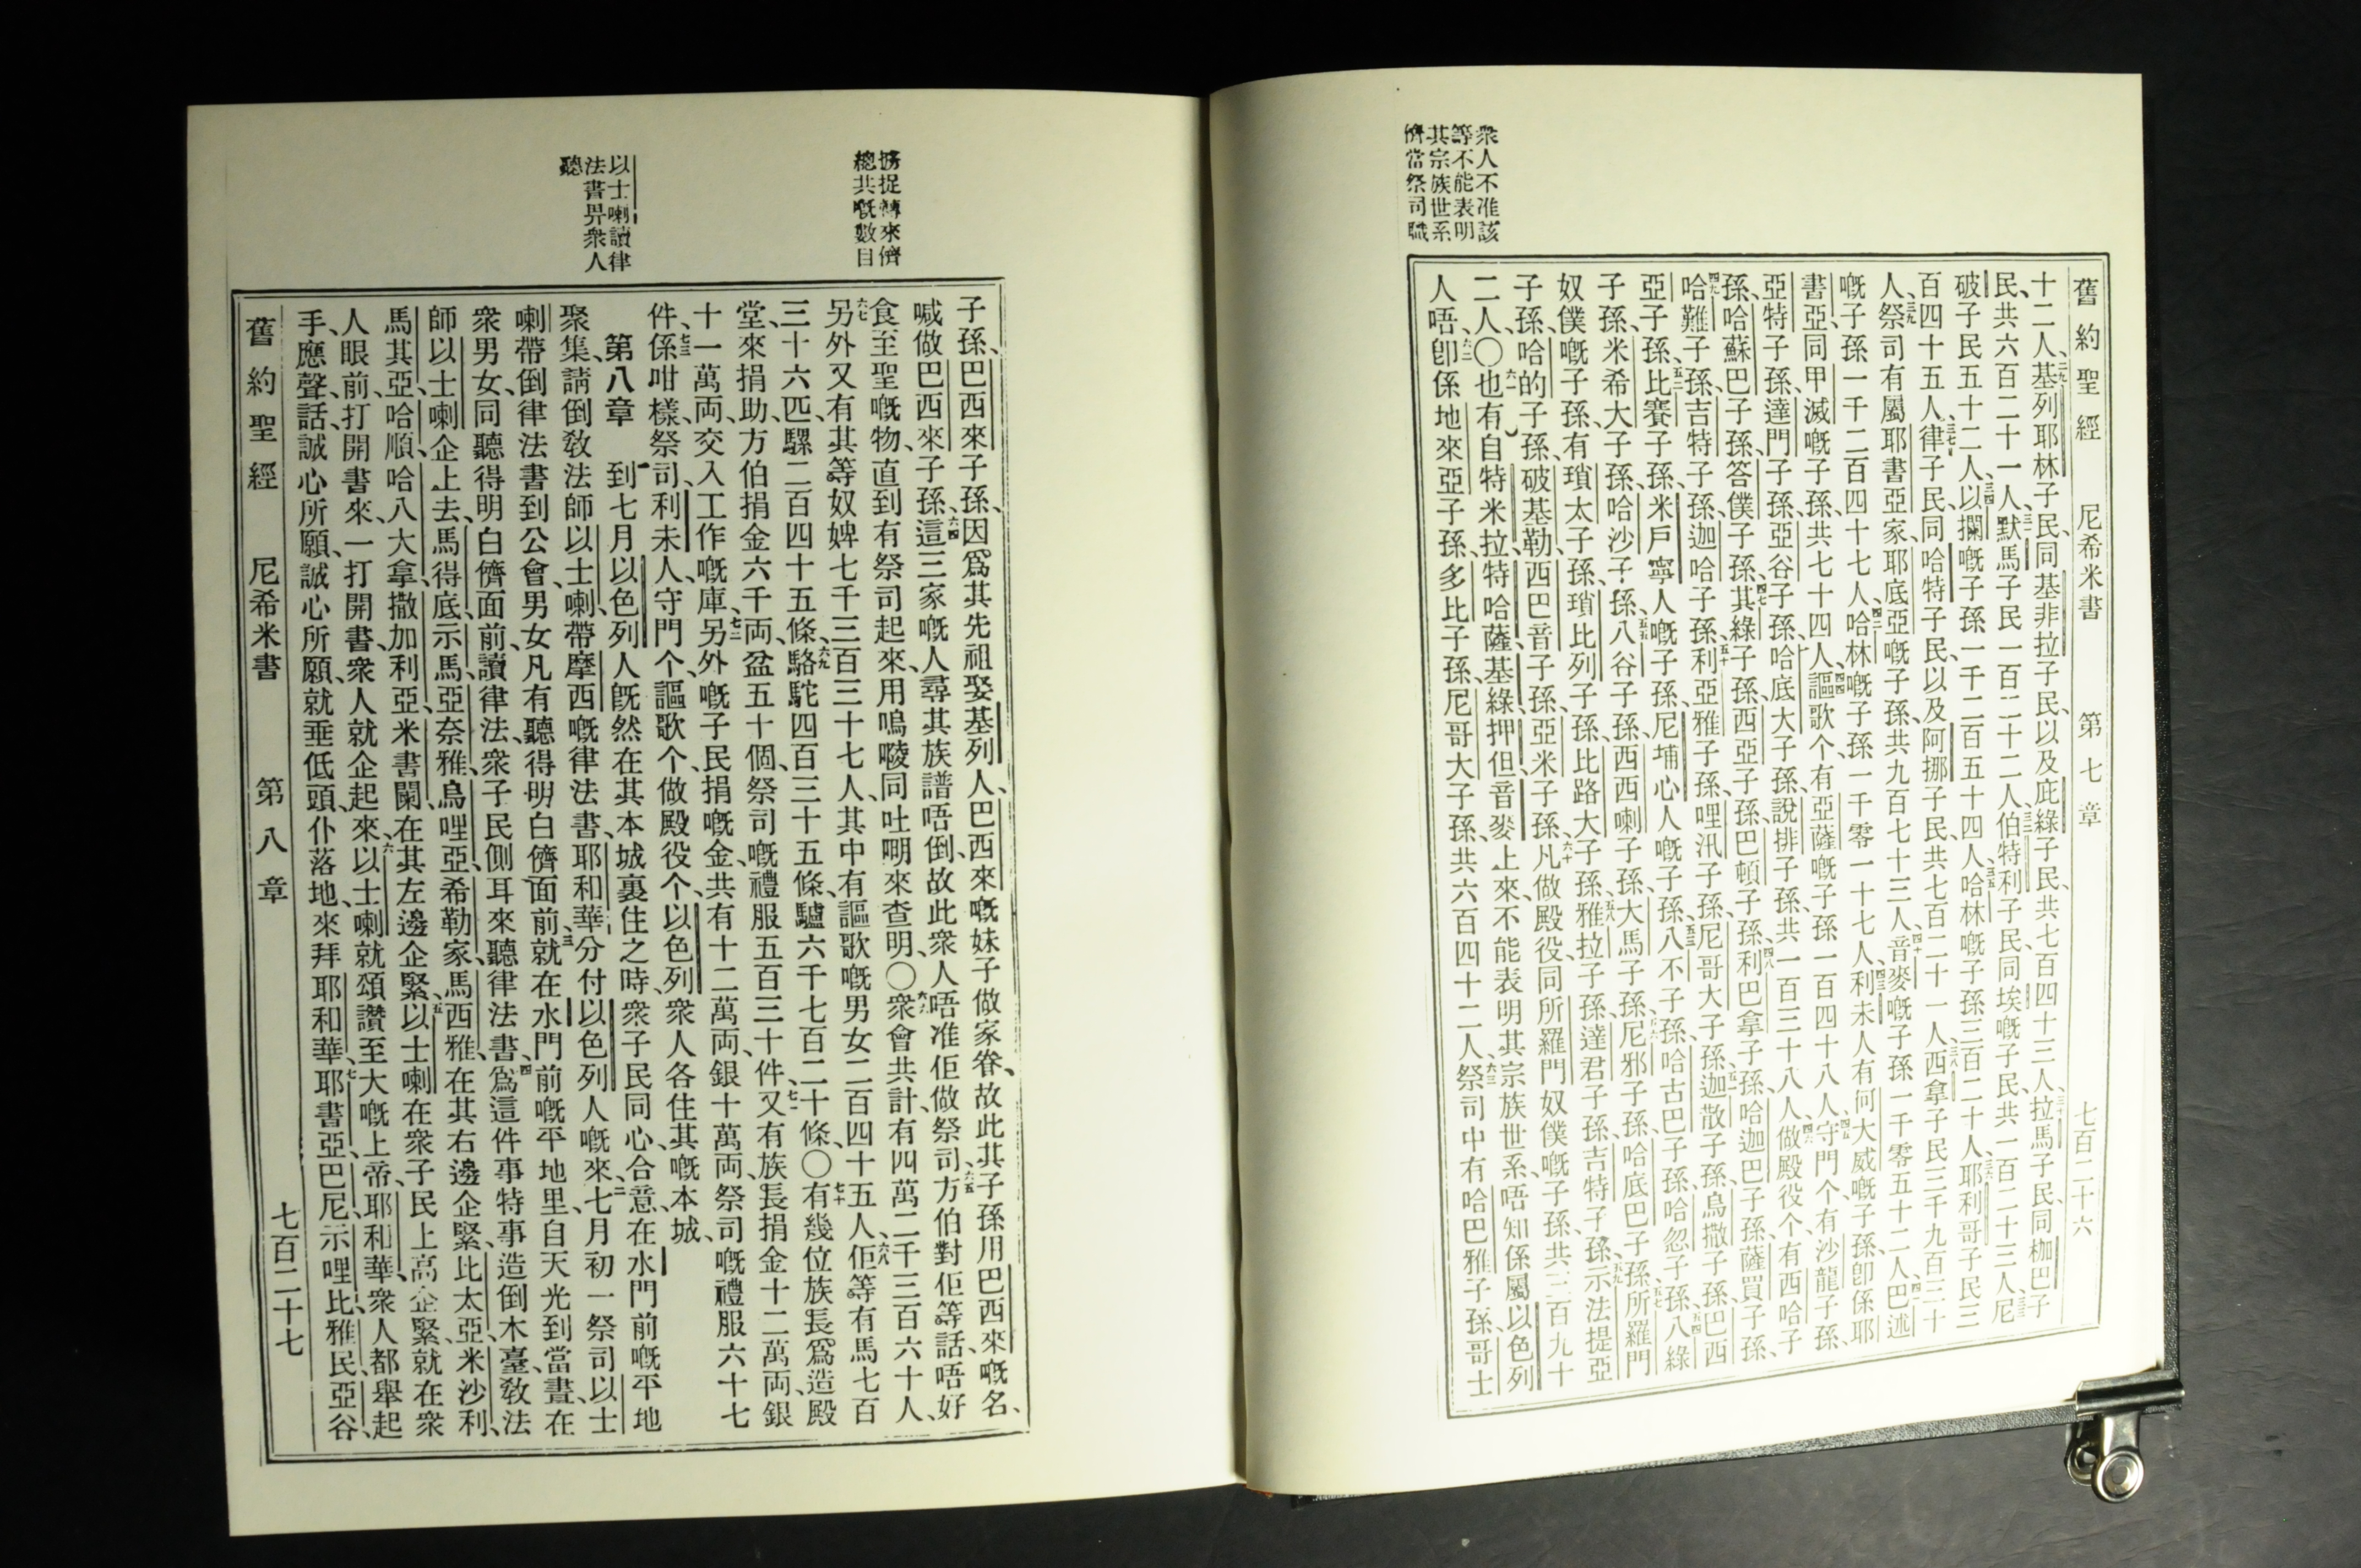 衆人不准該
等不能表明
其宗族世系
儕當祭司職
舊約聖經 尼希米書 第七章 七百二十六
十二人、二九基列耶林子民、同基非拉子民、以及庇綠子民、共七百四十三人、三十拉馬子民、同枷巴子
民、共六百二十一人、三一默馬子民一百二十二人、三二伯特利子民、同埃嘅子民、共一百二十三人、三三尼
破子民五十二人、三四以攔嘅子孫一千二百五十四人、三五哈林嘅子孫三百二十人、三六耶利哥子民三
百四十五人、三七律子民、同哈特子民、以及阿挪子民、共七百二十一人、三八西拿子民三千九百三十
人、三九祭司有屬耶書亞家、耶底亞嘅子孫、共九百七十三人、四十音麥嘅子孫一千零五十二人、四一巴述
嘅子孫一千二百四十七人、四二哈林嘅子孫一千零一十七人、四三利未人有何大威嘅子孫、卽係耶
書亞同甲滅嘅子孫、共七十四人、四四謳歌个有亞薩嘅子孫一百四十八人、四五守門个有沙龍子孫、
亞特子孫、達門子孫、亞谷子孫、哈底大子孫、說排子孫、共一百三十八人、四六做殿役个、有西哈子
孫、哈蘇巴子孫、答僕子孫、四七其綠子孫、西亞子孫、巴頓子孫、四八利巴拿子孫、哈迦巴子孫、薩買子孫、
四九哈難子孫、吉特子孫、迦哈子孫、五十利亞雅子孫、哩汛子孫、尼哥大子孫、五一迦散子孫、烏撒子孫、巴西
亞子孫、五二比賽子孫、米戶寧人嘅子孫、尼埔心人嘅子孫、五三八不子孫、哈古巴子孫、哈忽子孫、五四八綠
子孫、米希大子孫、哈沙子孫、五五八谷子孫、西西喇子孫、大馬子孫、五六尼邪子孫、哈底巴子孫、五七所羅門
奴僕嘅子孫、有瑣太子孫、瑣比列子孫、比路大子孫、五八雅拉子孫、達君子孫、吉特子孫、五九示法提亞
子孫、哈的子孫、破基勒西巴音子孫、亞米子孫、六十凡做殿役、同所羅門奴僕嘅子孫、共三百九十
二人、〇六一也有自特米拉、特哈薩、基綠、押但、音麥、上來、不能表明其宗族世系、唔知係屬以色列
人唔、六二卽係地來亞子孫、多比子孫、尼哥大子孫、共六百四十二人、六三祭司中有哈巴雅子孫、哥士
擄捉轉來儕
總共嘅數目
以士喇讀律
法書畀衆人
聽
子孫、巴西來子孫、因爲其先祖娶基列人、巴西來嘅妹子做家眷、故此其子孫用巴西來嘅名、
喊做巴西來子孫、六四這三家嘅人尋其族譜唔倒、故此衆人唔准佢做祭司、六五方伯對佢等話、唔好
食至聖嘅物、直到有祭司起來、用嗚㖫同吐𠵼來查明、〇六六衆會共計、有四萬二千三百六十人、
六七另外又有其等奴婢七千三百三十七人、其中有謳歌嘅男女二百四十五人、六八佢等有馬七百
三十六匹、騾二百四十五條、六九駱駝四百三十五條、驢六千七百二十條、〇七十有幾位族長爲造殿
堂、來捐助、方伯捐金六千両、盆五十個、祭司嘅禮服五百三十件、七一又有族長捐金十二萬両、銀
十一萬両、交入工作嘅庫、七二另外嘅子民捐嘅金、共有十二萬両、銀十萬両、祭司嘅禮服六十七
件、七三係咁樣祭司、利未人、守門个、謳歌个、做殿役个、以色列衆人各住其嘅本城、
第八章 一到七月以色列人旣然在其本城裏住之時、衆子民同心合意、在水門前嘅平地
聚集、請倒教法師以士喇、帶摩西嘅律法書、耶和華分付以色列人嘅來、二七月初一祭司以士
喇帶倒律法書到公會、男女凡有聽得明白儕面前、三就在水門前嘅平地里、自天光到當晝、在
衆男女、同聽得明白儕面前、讀律法、衆子民側耳來聽律法書、四爲這件事特事造倒木臺、教法
師以士喇企上去、馬得底、示馬、亞奈雅、烏哩亞、希勒家、馬西雅、在其右邊企緊、比太亞、米沙利、
馬其亞、哈順、哈八大拿、撒加利亞、米書闌、在其左邊企緊、五以士喇在衆子民上高企緊、就在衆
人眼前、打開書來、一打開書、衆人就企起來、六以士喇就頌讚至大嘅上帝、耶和華、衆人都舉起
手、應聲、話、誠心所願、誠心所願、就垂低頭、仆落地、來拜耶和華、七耶書亞、巴尼、示哩比雅民、亞谷、
舊約聖經 尼希米書 第八章 七百二十七